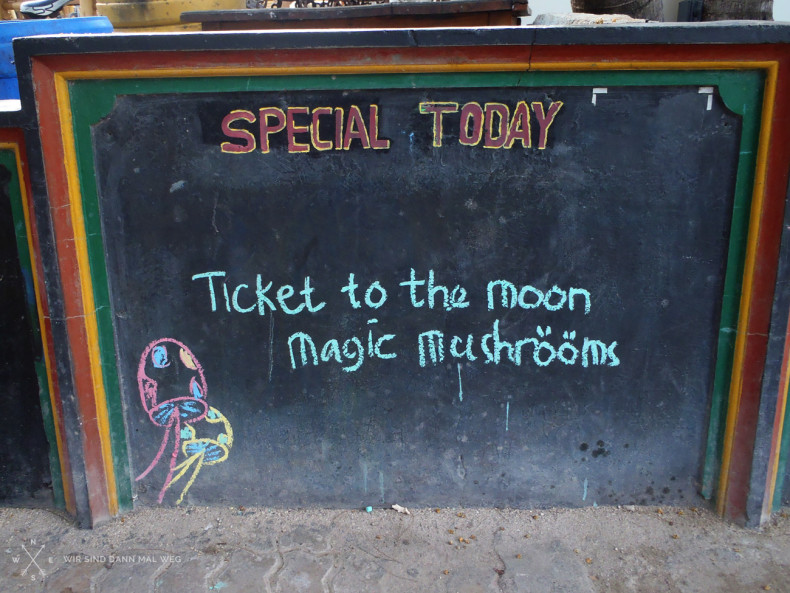 SPECIAL TODAY
Ticket to the moon
magic mushrööms
N
W E
S
WIR SIND DANN MAL WEG